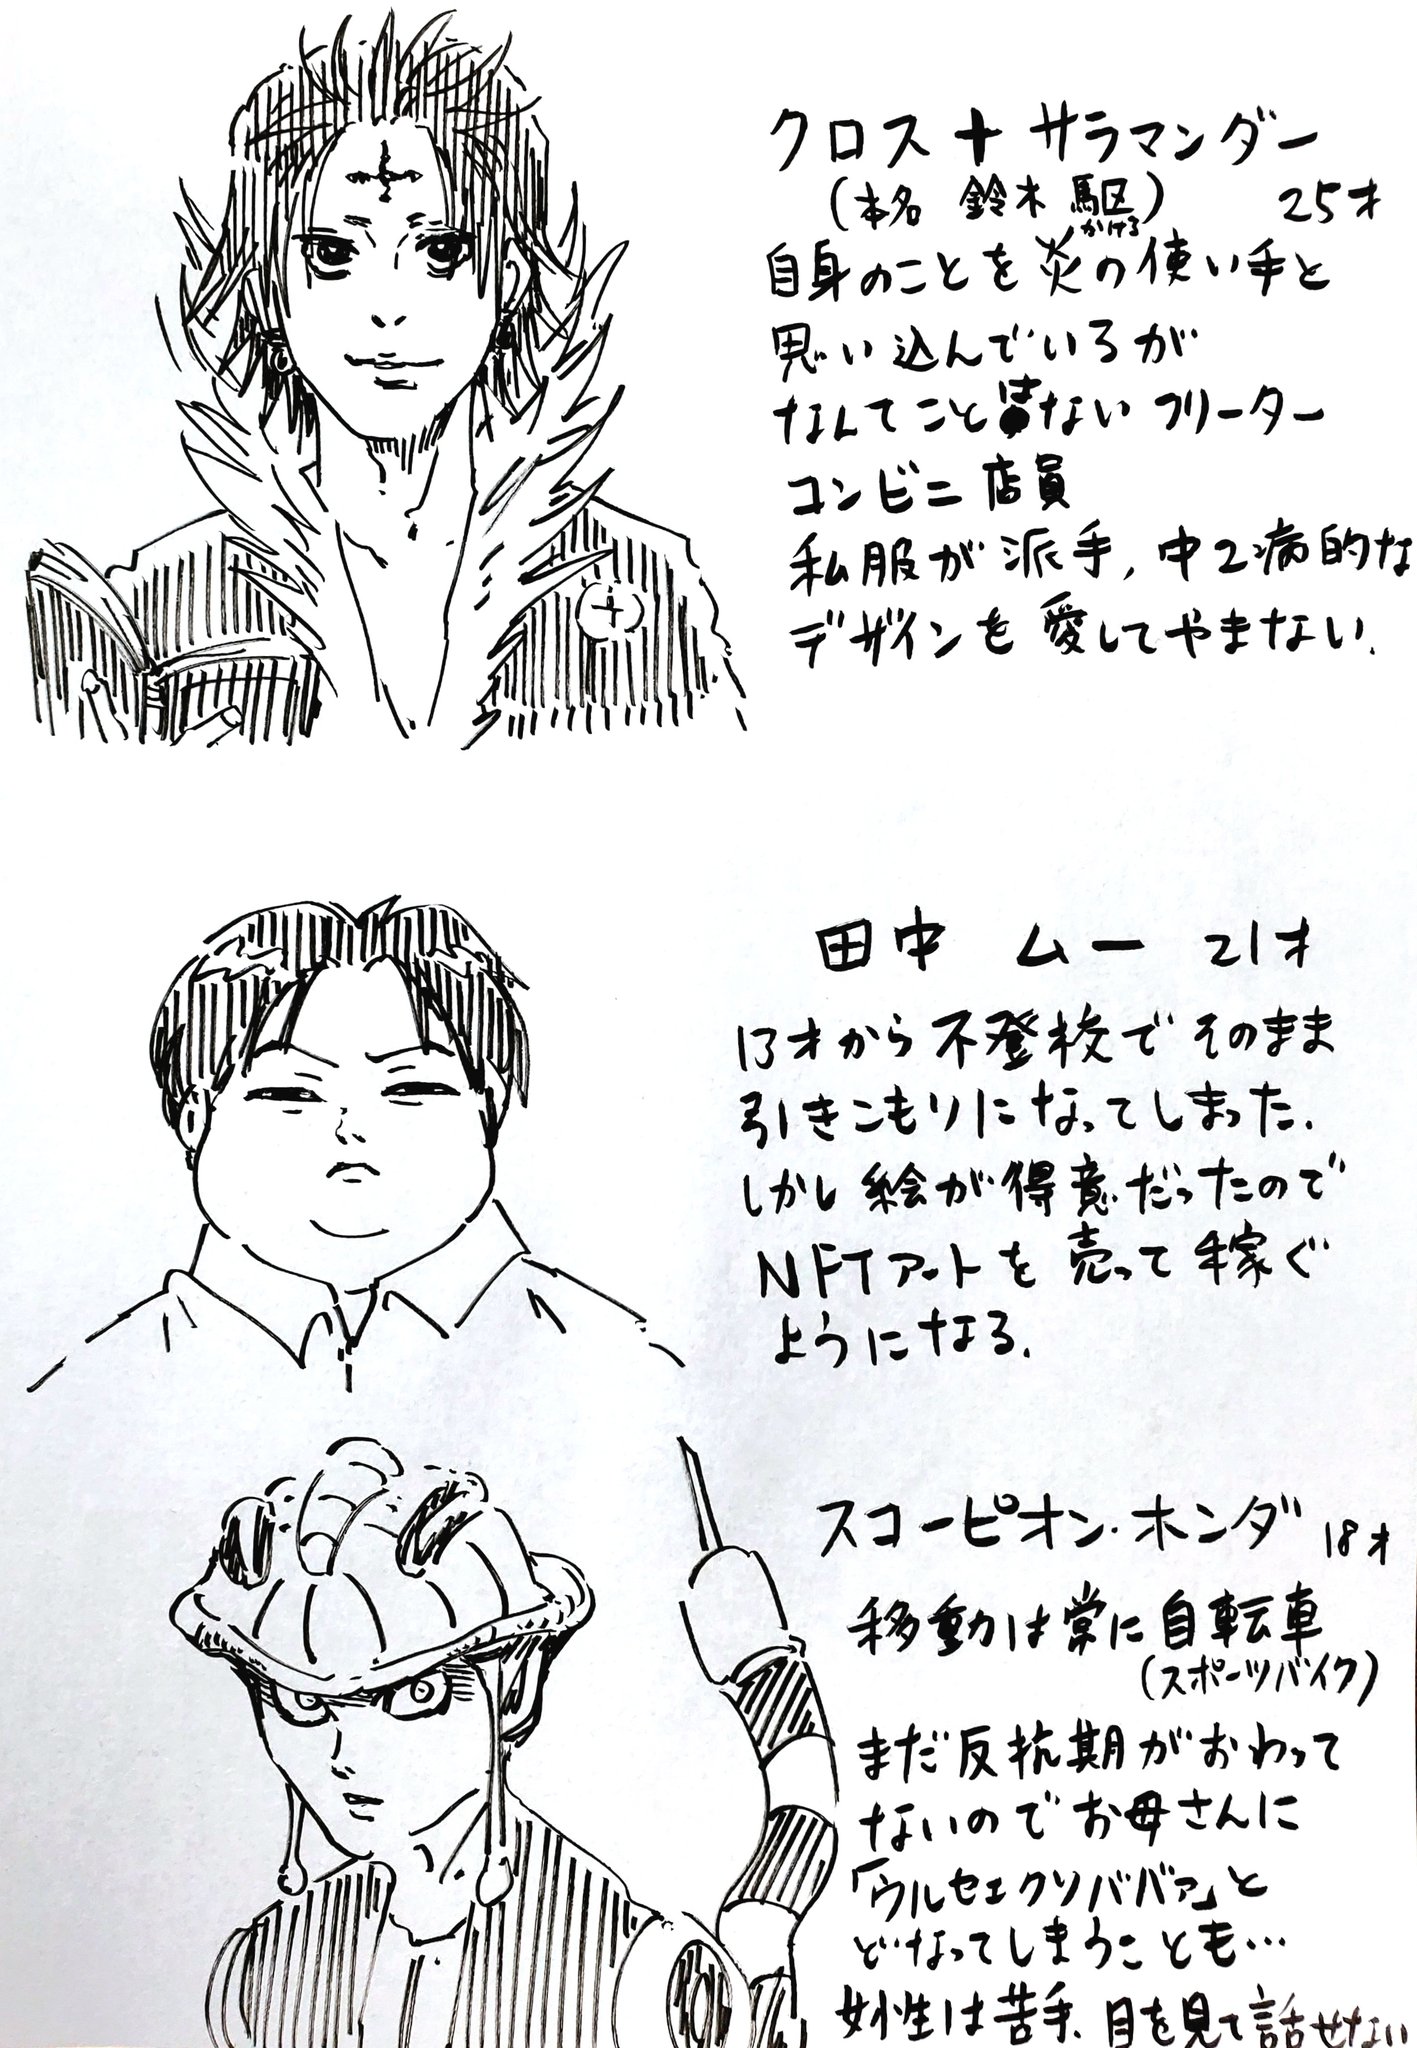 クロス十サラマンダー
(本名 鈴木 駆) 25才
かける
自身のことを炎の使い手と
思い込んでいるが
なんてことはないフリーター
コンビニ店員
私服が派手、中2病的な
デザインを愛してやまない.
田中 ムー 21才
13才から不登校でそのまま
引きこもりになってしまった.
しかし絵が得意だったので
NFTアートを売って稼ぐ
ようになる.
スコーピオン・ホンダ 18才
移動は常に自転車
(スポーツバイク)
まだ反抗期がおわって
ないのでお母さんに
「ウルセェクソババァ」と
どなってしまうことも…
女性は苦手、目を見て話せない